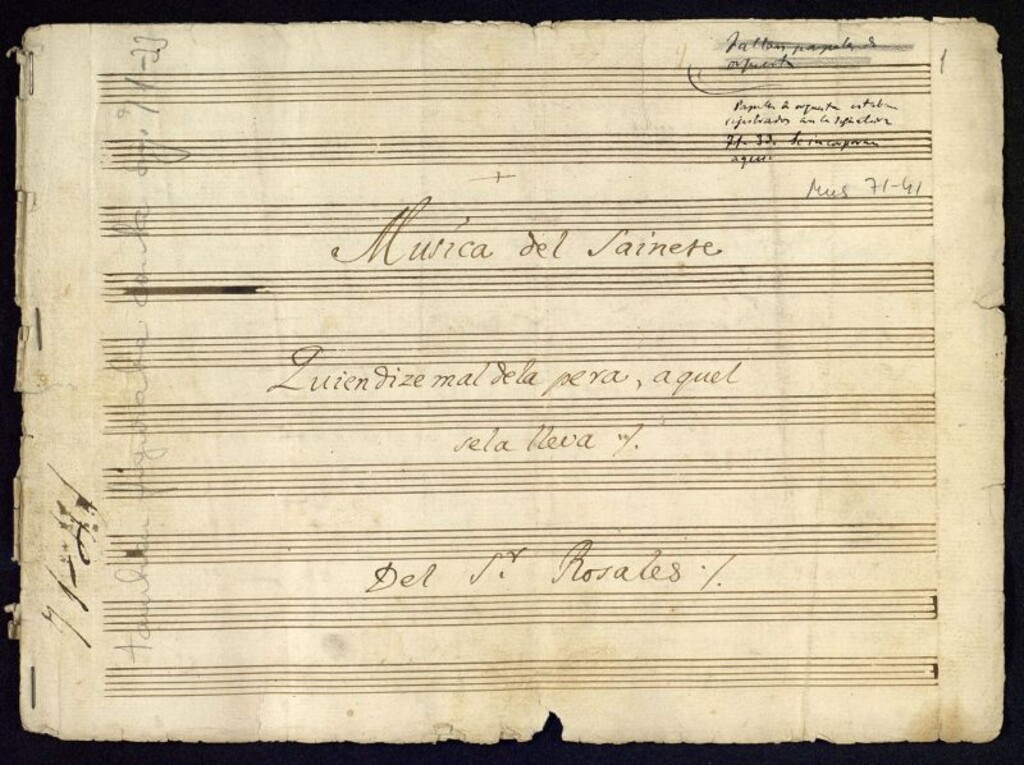 Faltan papeles de
orquesta
1
Papeles de orquesta estaban
registrados con la signatura
71-33. Se incorporan
aquí.
Mus 71-41
Musica del Sainete
Quien dize mal dela pera, aquel
sela lleva %.
Del Sr. Rosales %.
71-41
también con la 71-33